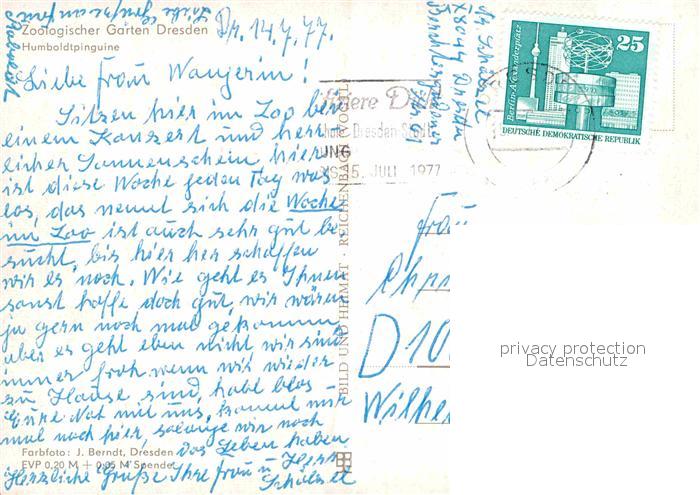 Zoologischer Garten Dresden
Humboldtpinguine
Dr. 14.7.77.
Liebe Frau Wangerin!
Sitzen hier im Zoo bei
einem Konzert und herr
licher Sonnenschein hier
ist diese Woche jeden Tag was
los, das nennt sich die Woche
im Zoo ist auch sehr gut be
sucht, bis hier her schaffen
wir es noch. Wie geht es Ihnen
sonst hoffe doch gut, wir wären
ja gern noch mal gekommen
aber es geht eben nicht wir sind
immer froh wenn wir wieder
zu Hause sind, habt blos
mit uns, kommt nur
mal noch hier, solange wir noch
das Leben haben
Herzliche Grüße Ihre Frau u. Herr
Farbfoto: J. Berndt, Dresden
EVP 0,20 M + 0,05 M Spende
BILD UND HEIMAT · REICHENBACH (VOGTL)
X8044 Dresden
Dresden-Stadt
UNG
15. JULI 1977
25
Berlin-Alexanderplatz
DEUTSCHE DEMOKRATISCHE REPUBLIK
Frau
D 10
Wilhe
privacy protection
Datenschutz